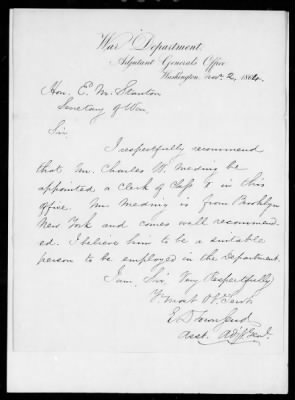 War Department,
Adjutant General's Office,
Washington, Nov. 2, 1864.
Hon. E. M. Stanton
Secretary of War.
Sir,
I respectfully recommend
that Mr. Charles W. Meding be
appointed a Clerk of Class I in this
Office. Mr Meding is from Brooklyn
New York and comes well recommend-
ed. I believe him to be a suitable
person to be employed in the Department.
I am, Sir, Very Respectfully
Y'r most Ob. Servt.
E D Townsend
Asst. Adjt. Genl.